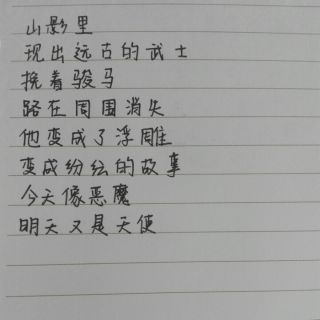 山影里
现出远古的武士
挽着骏马
路在周围消失
他变成了浮雕
变成纷纭的故事
今天像恶魔
明天又是天使